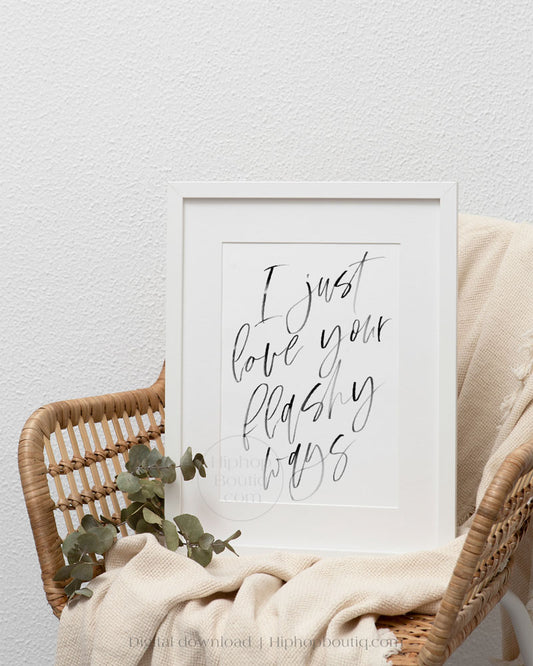 I just
love your
flashy
ways
Hiphop
Boutiq
.com
Digital download | Hiphopboutiq.com